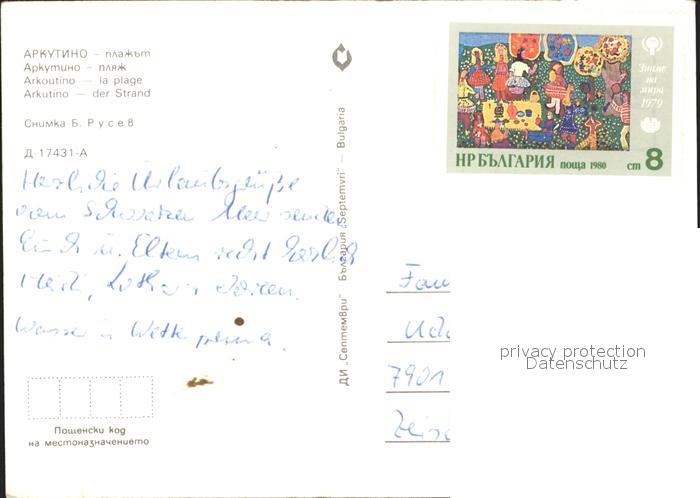 АРКУТИНО – плажът
Аркутино – пляж
Arkoutino — la plage
Arkutino — der Strand
Снимка Б. Русев
Д-17431-А
Herzliche Urlaubsgrüße
vom Schwarzen Meer senden
Euch u. Eltern recht herzlich
Heidi, Lothar u.
Wasser u. Wetter prima.
Пощенски код
на местоназначението
ДИ „Септември" — България „Septemvri" — Bulgaria
Знаме
на
мира
1979
НР БЪЛГАРИЯ поща 1980 ст 8
Fam
Udo
7901
privacy protection
Datenschutz